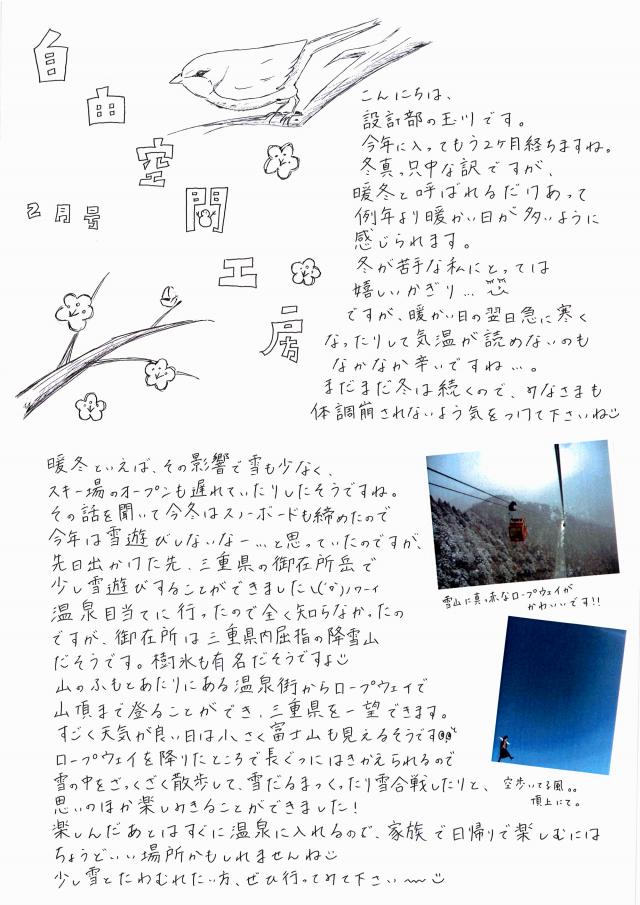 自由空間工房
2月号
こんにちは、
設計部の玉川です。
今年に入ってもう2ヶ月経ちますね。
冬真っ只中な訳ですが、
暖冬と呼ばれるだけあって
例年より暖かい日が多いように
感じられます。
冬が苦手な私にとっては
嬉しいかぎり…
ですが、暖かい日の翌日急に寒く
なったりして気温が読めないのも
なかなか辛いですね…。
まだまだ冬は続くので、みなさまも
体調崩されないよう気をつけて下さいね
暖冬といえば、その影響で雪も少なく、
スキー場のオープンも遅れていたりしたそうですね。
その話を聞いて今冬はスノーボードも締めたので
今年は雪遊びしないなー…と思っていたのですが、
先日出かけた先、三重県の御在所岳で
少し雪遊びすることができました\(^o^)/ワーイ
温泉目当てに行ったので全く知らなかったの
ですが、御在所は三重県内屈指の降雪山
だそうです。樹氷も有名だそうですよ
山のふもとあたりにある温泉街からロープウェイで
山頂まで登ることができ、三重県を一望できます。
すごく天気が良い日は小さく富士山も見えるそうです
ロープウェイを降りたところで長ぐつにはきかえられるので
雪の中をざくざく散歩して、雪だるまつくったり雪合戦したりと、
思いのほか楽しみきることができました!
楽しんだあとはすぐに温泉に入れるので、家族で日帰りで楽しむには
ちょうどいい場所かもしれませんね
少し雪とたわむれたい方、ぜひ行ってみて下さい〜
雪山に真っ赤なロープウェイが
かわいいです!!
空歩いてる風。。
頂上にて。